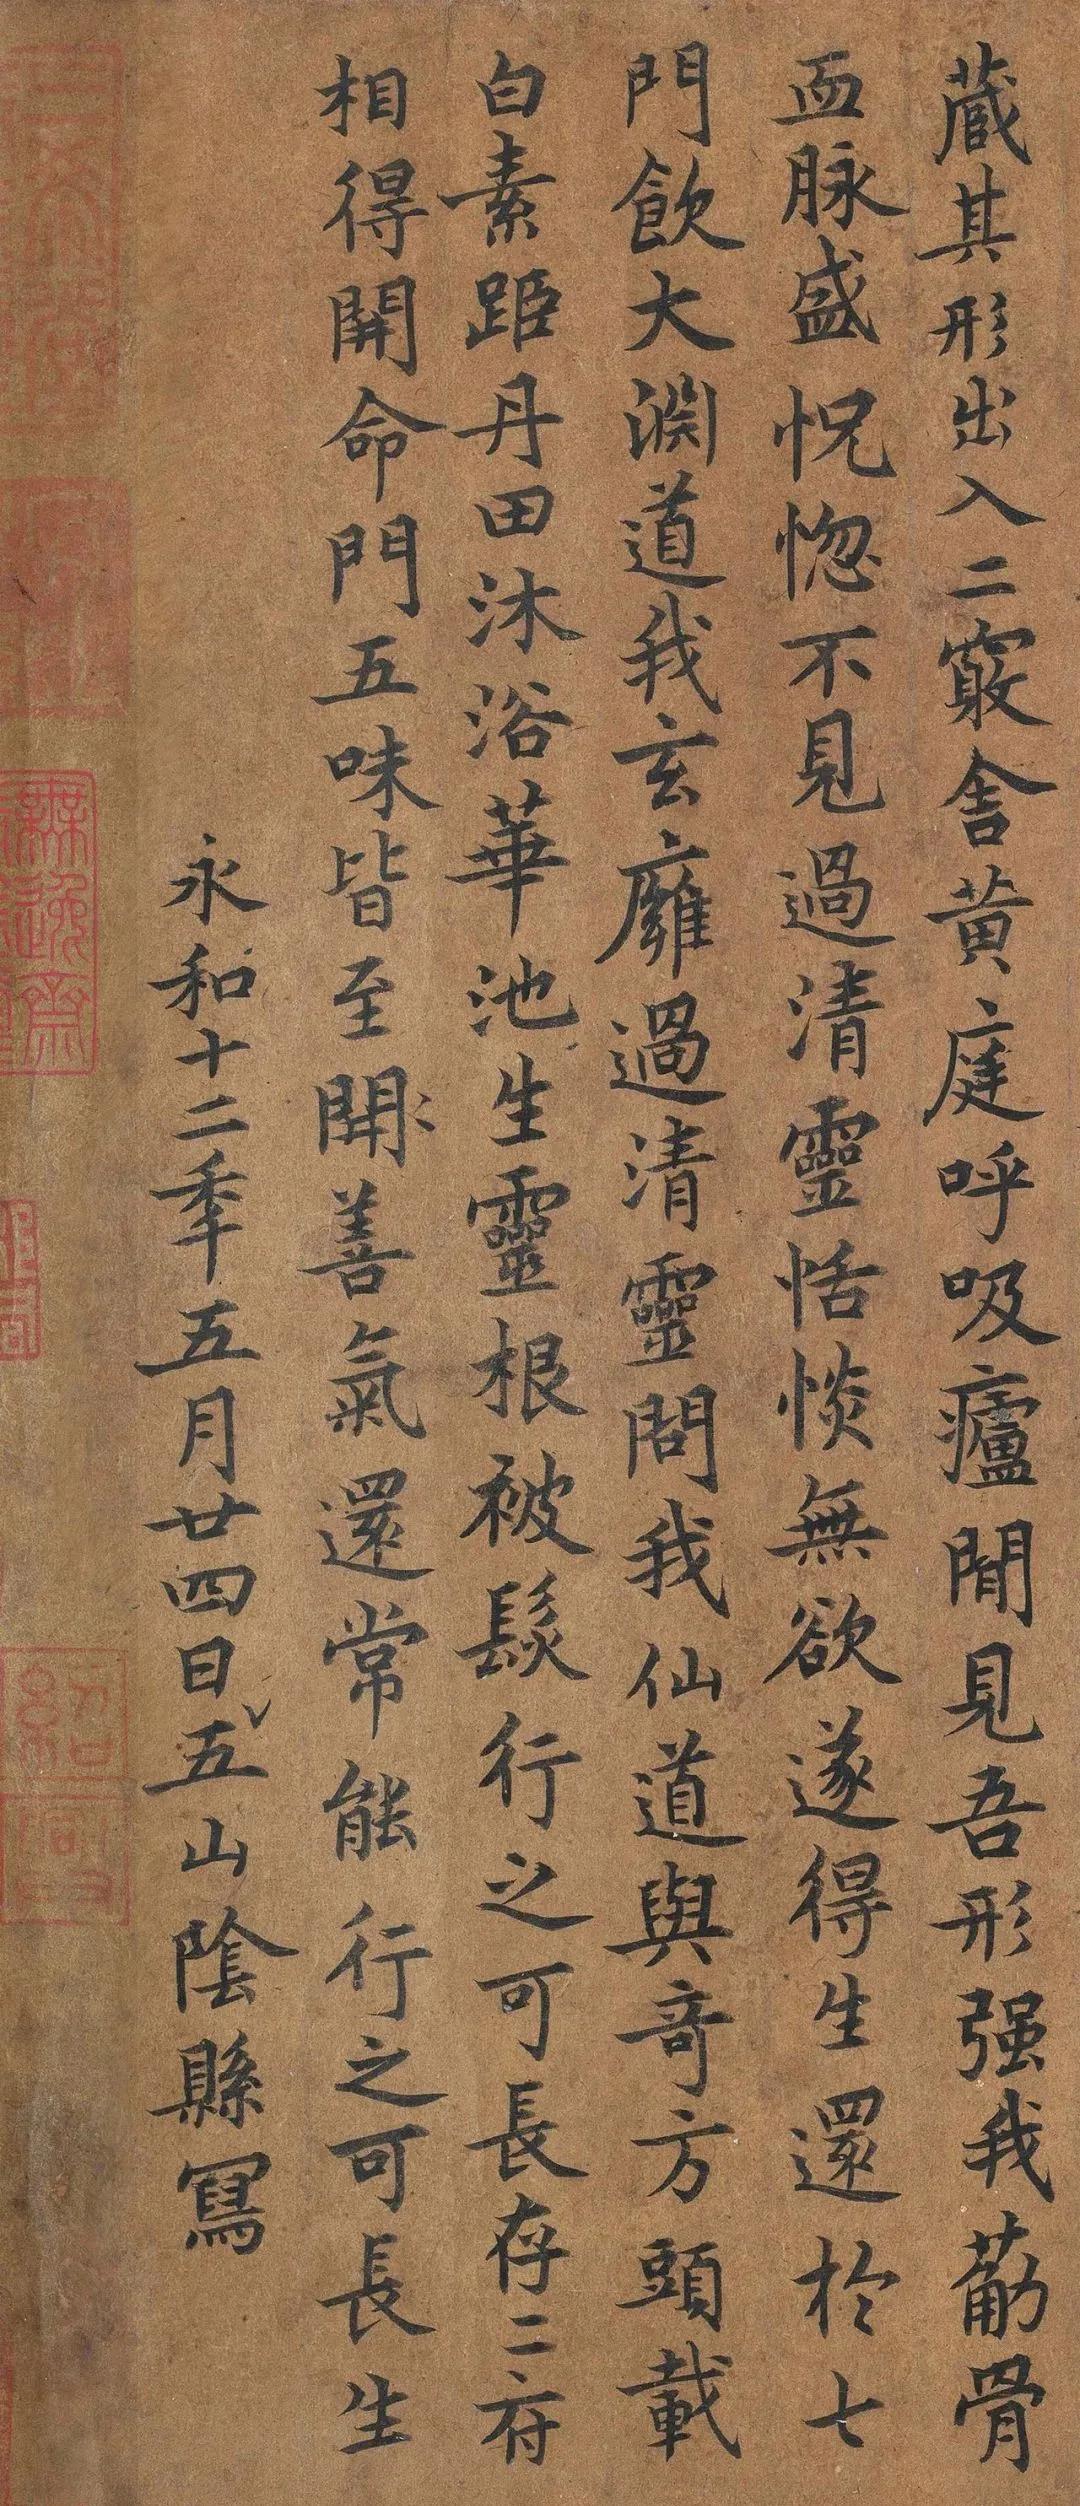 藏其形出入二竅舍黃庭呼吸廬閒見吾形强我葋骨
血脉盛怳惚不見過清靈恬惔無欲遂得生還於七
門飲大淵道我玄廱過清靈問我仙道與奇方頭載
白素距丹田沐浴華池生靈根被髮行之可長存二府
相得開命門五味皆至開善氣還常能行之可長生
永和十二秊五月廿四日五山陰縣寫
無逸齋
紹